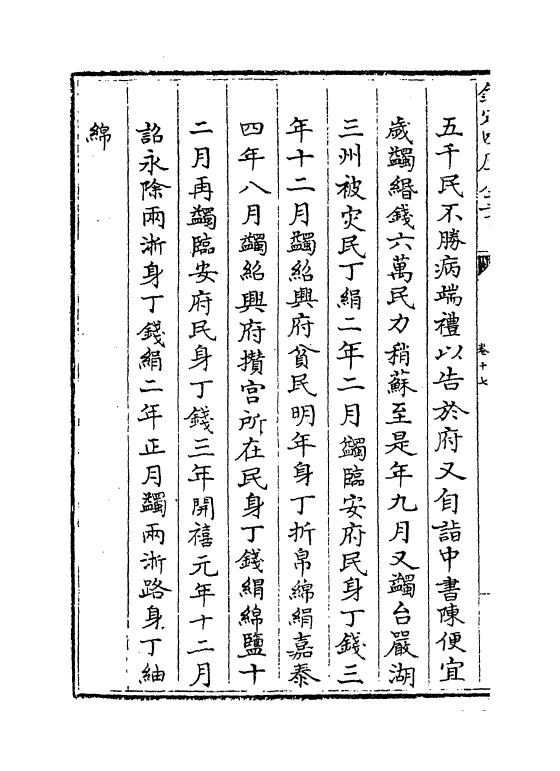 五千民不勝病端禮以告於府又自詣中書陳便宜
歲蠲緡錢六萬民力稍蘇至是年九月又蠲台嚴湖
三州被灾民丁絹二年二月蠲臨安府民身丁錢三
年十二月蠲紹興府貧民明年身丁折帛綿絹嘉泰
四年八月蠲紹興府攢宫所在民身丁錢絹綿鹽十
二月再蠲臨安府民身丁錢三年開禧元年十二月
詔永除兩浙身丁錢絹二年正月蠲兩浙路身丁紬
綿
卷十七